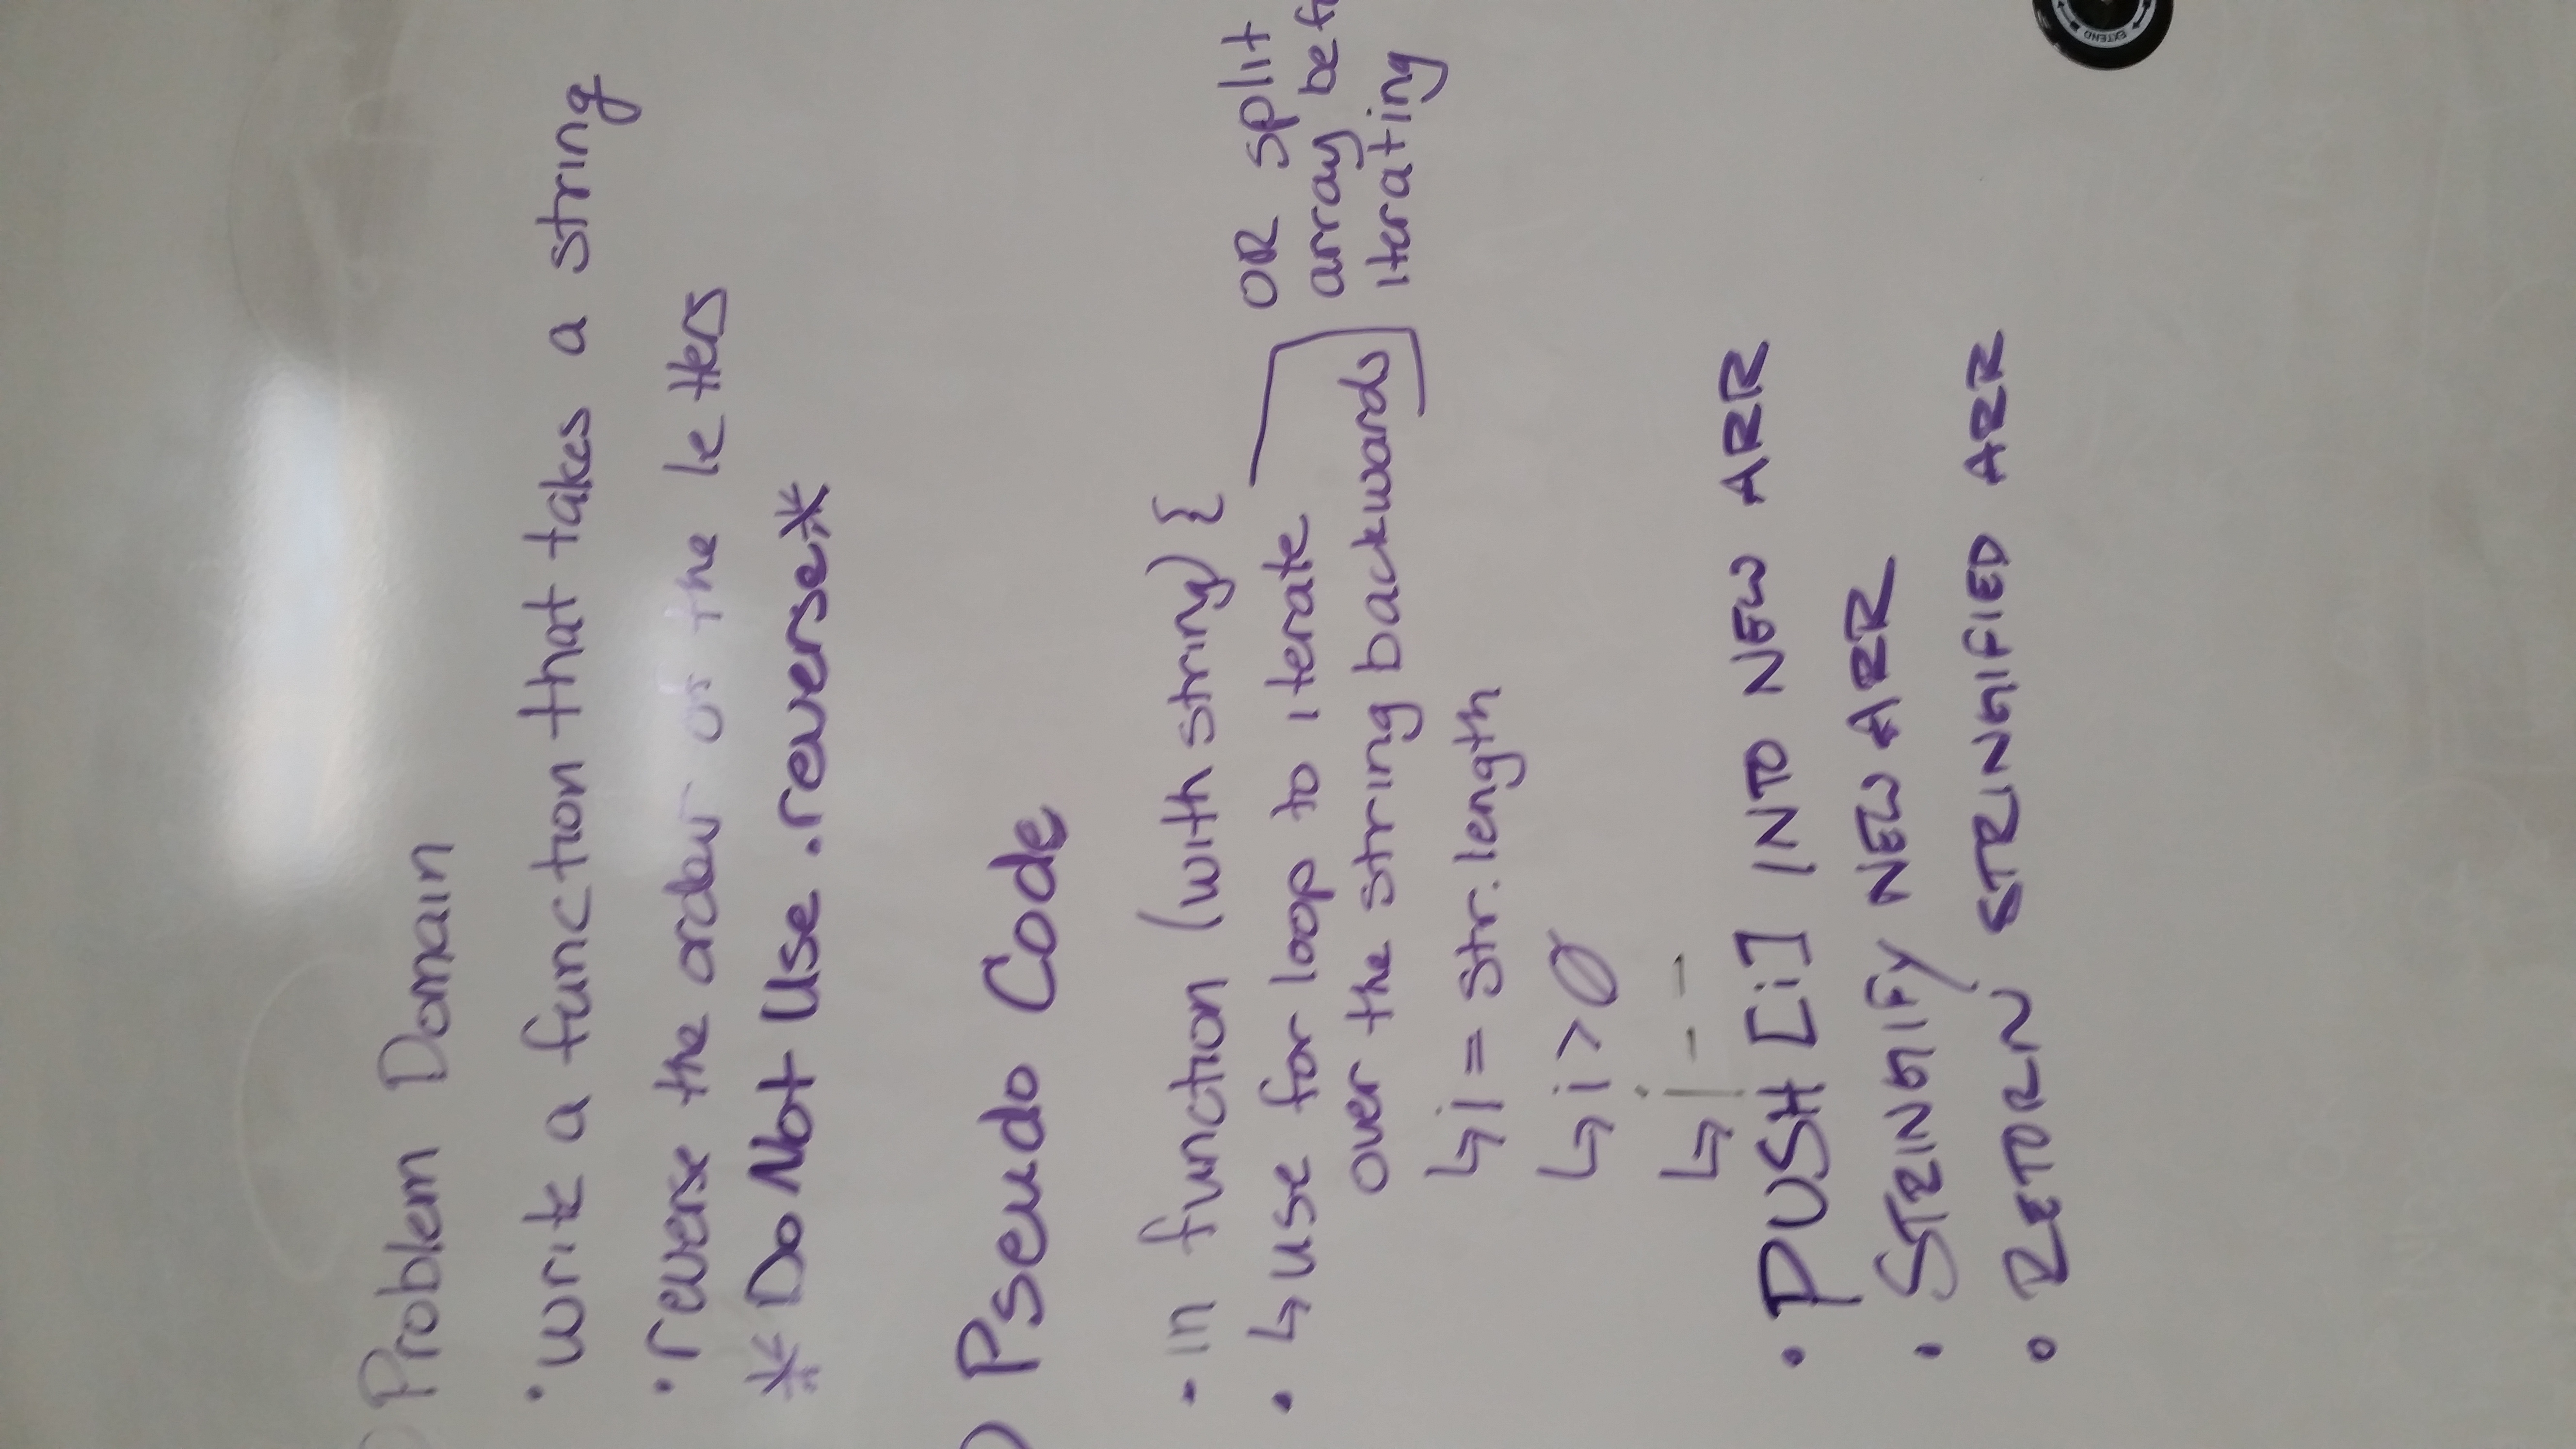 Problem Domain
• write a function that takes a string
• reverse the order of the letters
* Do Not Use .reverse *
) Pseudo Code
- in function (with string) {
• ↳ use for loop to iterate
over the string backwards
OR split
array befo
iterating
↳ i = str.length
↳ i > 0
↳ i - -
• PUSH [i] INTO NEW ARR
• STRINGIFY NEW ARR
• RETORN STRINGIFIED ARR
EXTEND